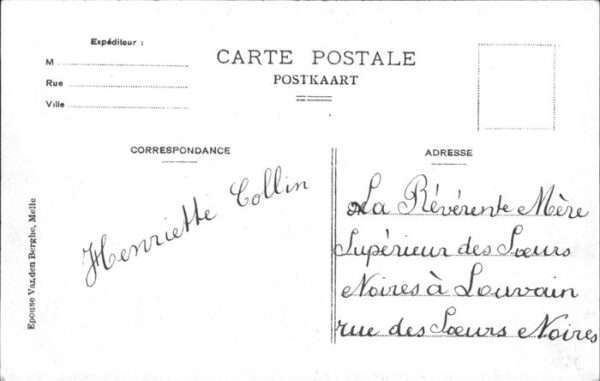 Expéditeur :
M
Rue
Ville
CARTE POSTALE
POSTKAART
CORRESPONDANCE
ADRESSE
Henriette Collin
La Révérente Mère
Supérieur des Sœurs
Noires à Louvain
rue des Sœurs Noires
Epouse Van den Berghe, Melle